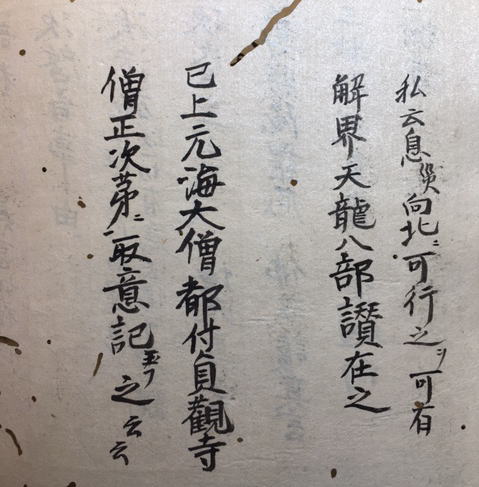 私云息災向北ニ可行之ヲ可有
解界天龍八部讃在之
已上元海大僧都付貞觀寺
僧正次第ニ取意記玉フ之云云